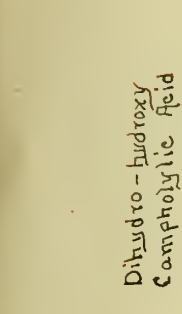 Dihydro-hydroxy
Campholylic Acid